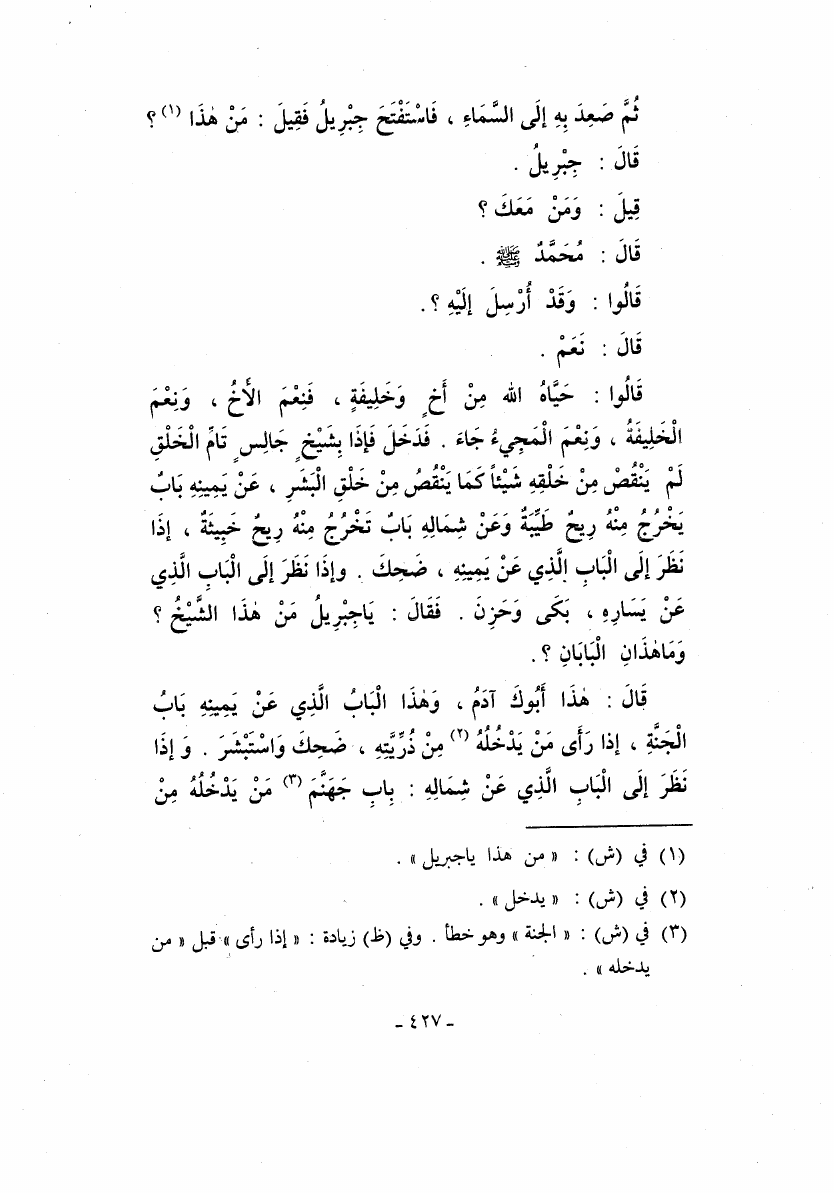 ثُمَّ صَعِدَ بِهِ إِلَى السَّمَاءِ ، فَاسْتَفْتَحَ جِبْرِيلُ فَقِيلَ : مَنْ هٰذَا (١) ؟
قَالَ : جِبْرِيلُ .
قِيلَ : وَمَنْ مَعَكَ ؟
قَالَ : مُحَمَّدٌ ﷺ .
قَالُوا : وَقَدْ أُرْسِلَ إِلَيْهِ ؟.
قَالَ : نَعَمْ .
قَالُوا : حَيَّاهُ الله مِنْ أَخٍ وَخَلِيفَةٍ ، فَنِعْمَ الأَخُ ، وَنِعْمَ
الْخَلِيفَةُ ، وَنِعْمَ الْمَجِيءُ جَاءَ . فَدَخَلَ فَإِذَا بِشَيْخٍ جَالِسٍ تَامِّ الْخَلْقِ
لَمْ يَنْقُصْ مِنْ خَلْقِهِ شَيْئاً كَمَا يَنْقُصُ مِنْ خَلْقِ الْبَشَرِ ، عَنْ يَمِينِهِ بَابٌ
يَخْرُجُ مِنْهُ رِيحٌ طَيِّبَةٌ وَعَنْ شِمَالِهِ بَابٌ تَخْرُجُ مِنْهُ رِيحٌ خَبِيثَةٌ ، إِذَا
نَظَرَ إِلَى الْبَابِ الَّذِي عَنْ يَمِينِهِ ، ضَحِكَ . وإِذَا نَظَرَ إِلَى الْبَابِ الَّذِي
عَنْ يَسَارِهِ ، بَكَى وَحَزِنَ . فَقَالَ : يَاجِبْرِيلُ مَنْ هٰذَا الشَّيْخُ ؟
وَمَاهٰذَانِ الْبَابَانِ ؟.
قَالَ : هٰذَا أَبُوكَ آدَمُ ، وَهٰذَا الْبَابُ الَّذِي عَنْ يَمِينِهِ بَابُ
الْجَنَّةِ ، إِذا رَأَى مَنْ يَدْخُلُهُ (٢) مِنْ ذُرِّيَّتِهِ ، ضَحِكَ وَاسْتَبْشَرَ . وَإِذَا
نَظَرَ إِلَى الْبَابِ الَّذِي عَنْ شِمَالِهِ : بِابِ جَهَنَّمَ (٣) مَنْ يَدْخُلُهُ مِنْ
(١) في (ش) : « من هذا ياجبريل » .
(٢) في (ش) : « يدخل » .
(٣) في (ش) : « الجنة » وهو خطأ . وفي (ظ) زيادة : « إذا رأى » قبل « من
يدخله » .
- ٤٢٧ -